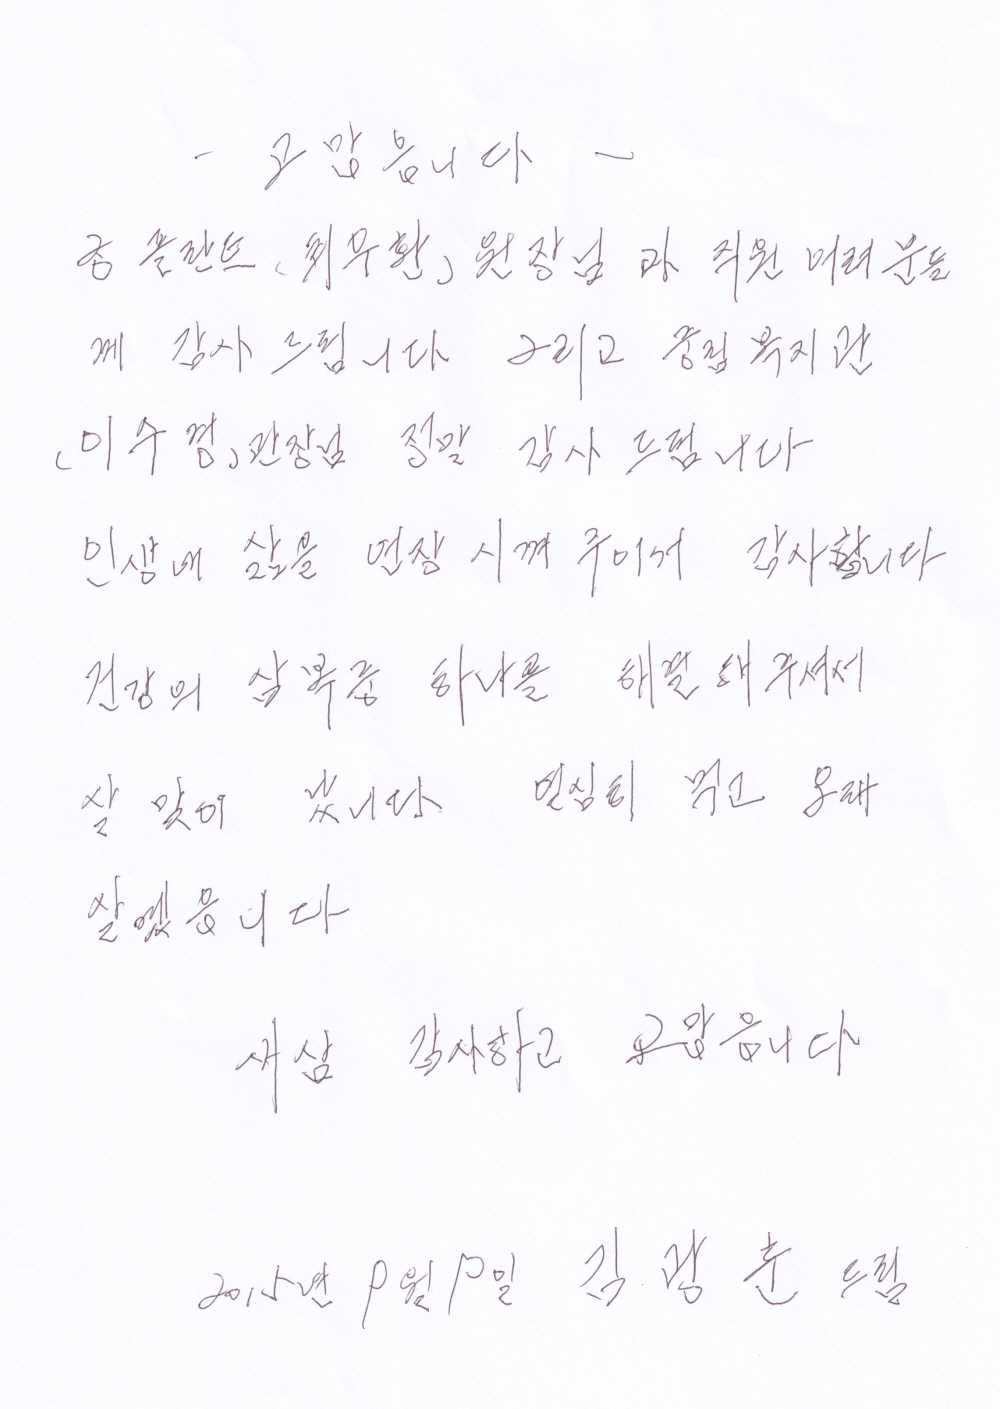 - 고맙읍니다 -
굿 플란트 「최무환」 원장님 과 직원 여러분들
께 감사 드립니다 그리고 중림 복지관
「이수경」관장님 정말 감사 드립니다
인생에 삶을 연장 시껴 주어서 감사합니다
건강의 삼복중 하나를 해결해 주셔서
살 맛이 났니다 열심히 먹고 오래
살겠읍니다
새삼 감사하고 고맙읍니다
2015년 9월 19일 김광춘 드림